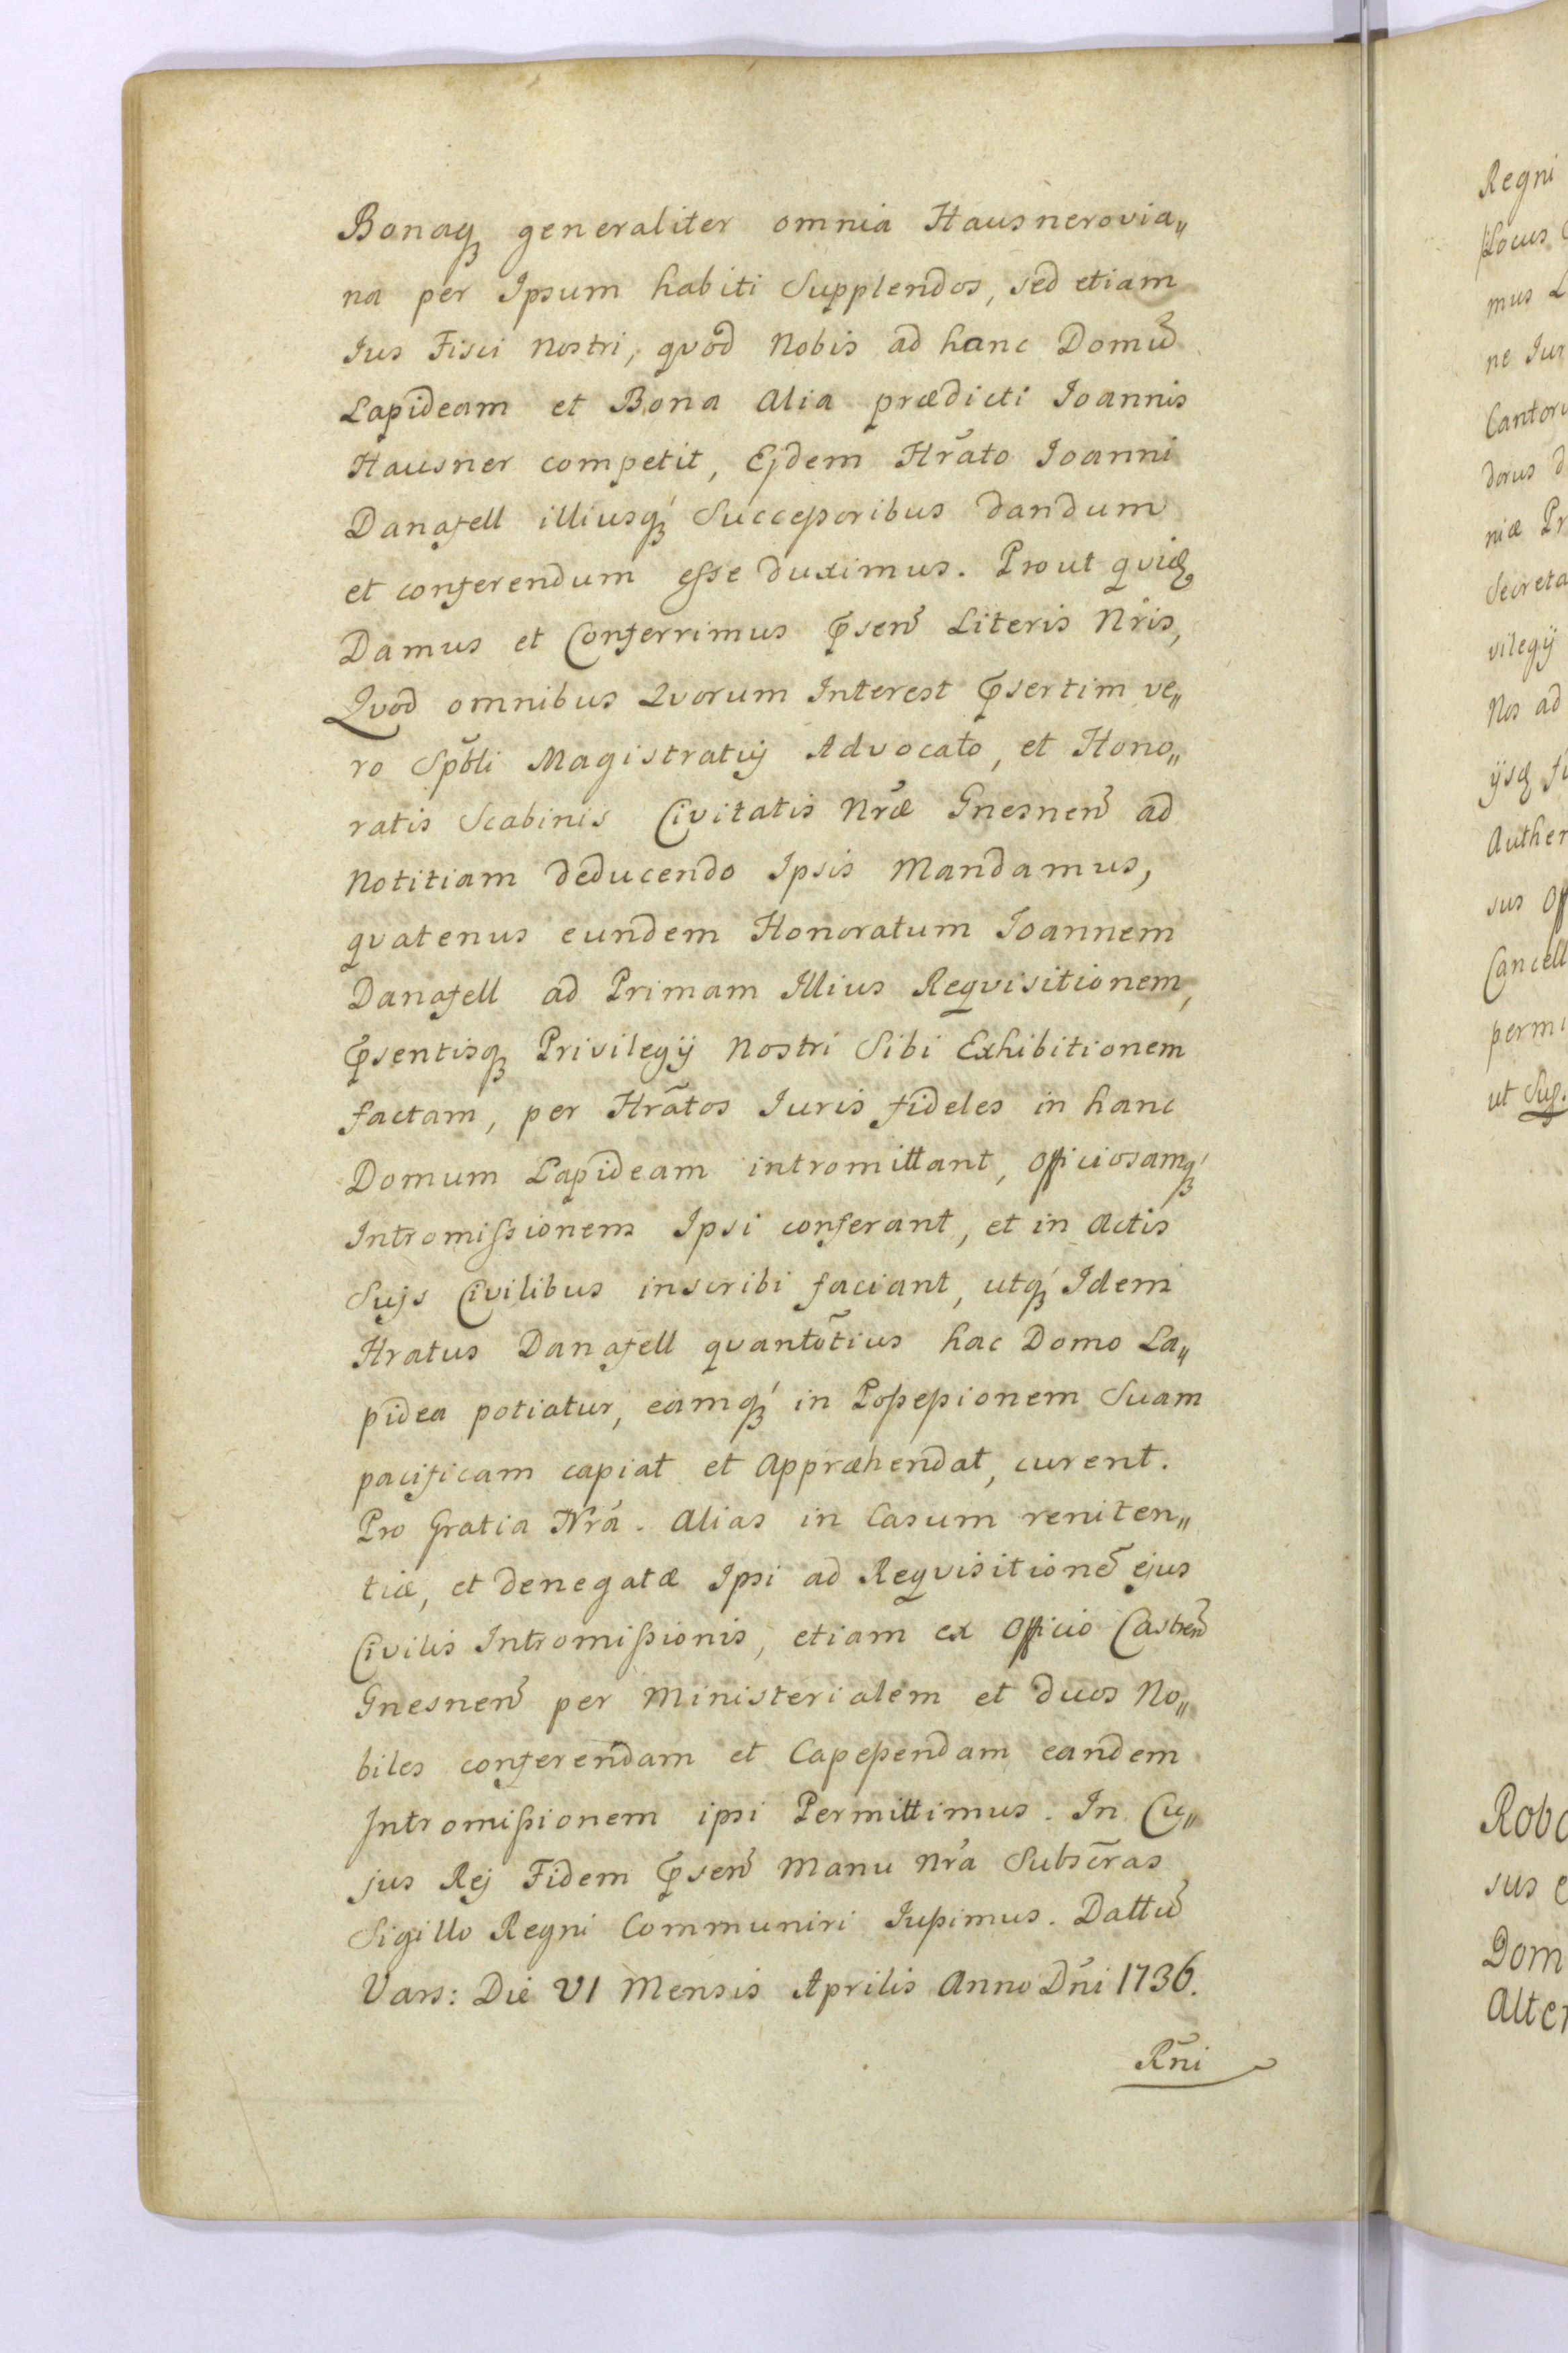 Bonaq₃ generaliter omnia Hausnerovia„
na per Ipsum habiti Supplendos, sed etiam
Ius Fisci Nostri, qvod Nobis ad hanc Domū
Lapideam et Bona Alia prædicti Ioannis
Hausner competit, Ejdem Hrato Ioanni
Danafell illiusq₃ Successoribus dandum
et conferendum esse duximus. Prout qvidē
Damus et Conferrimus Pṡen̄ Literis Nris,
Qvod omnibus Qvorum Interest Pṡertim ve„
ro Spbli Magistratuj Advocato, et Hono„
ratis Scabinis Civitatis Nræ Gnesnen̄ ad
Notitiam deducendo Ipsis Mandamus,
qvatenus eundem Honoratum Ioannem
Danafell ad Primam Illius Reqvisitionem,
Pṡentisq₃ Privilegij Nostri Sibi Exhibitionem
factam, per Hratos Iuris fideles in hanc
Domum Lapideam intromittant, Officiosamq₃
Intromissionem Ipsi conferant, et in Actis
Sujs Civilibus inscribi faciant, utq₃ Idem
Hratus Danafell qvantotius hac Domo La„
pidea potiatur, eamq₃ in Possessionem Suam
pacificam capiat et Appræhendat, curent.
Pro Gratia Nra. Alias in Casum reniten„
tiæ, et denegatæ Ipsi ad Reqvisitionē ejus
Civilis Intromissionis, etiam ex Officio Castren̄
Gnesnen̄ per Ministerialem et duos No„
biles conferendam et Capessendam eandem
Intromissionem ipsi Permittimus. In Cu„
jus Rej Fidem Pṡen̄ Manu Nra Subscras
Sigillo Regni Communiri Iussimus. Dattū
Vars: Die VI Mensis Aprilis Anno Dni 1736.
Rni
Regni
Locus
mus
ne Iur
Cantor
dorus
niæ
Secreta
vilegij
Nos ad
Authen
sus
Cancell
permi
ut
sus
Dom
Alter